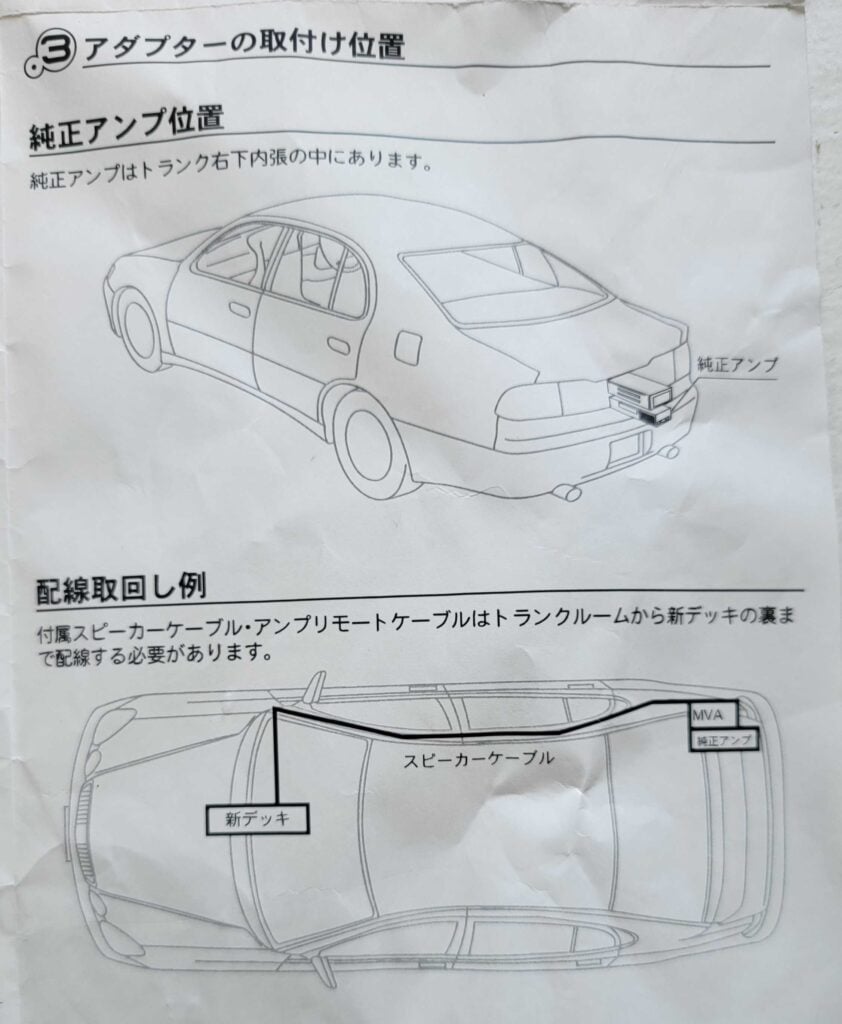 .3 アダプターの取付け位置
純正アンプ位置
純正アンプはトランク右下内張の中にあります。
純正アンプ
配線取回し例
付属スピーカーケーブル・アンプリモートケーブルはトランクルームから新デッキの裏ま
で配線する必要があります。
MVA
純正アンプ
スピーカーケーブル
新デッキ